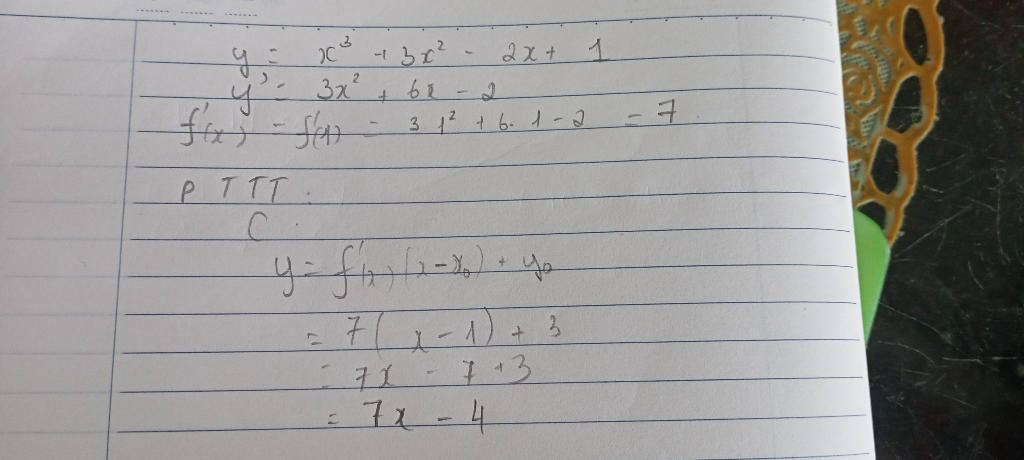 y = x³ + 3x² - 2x + 1
y' = 3x² + 6x - 2
f'(x) = f'(1) = 3.1² + 6.1 - 2 = 7
PTTT:
C:
y = f'(x)(x - x₀) + y₀
= 7(x - 1) + 3
= 7x - 7 + 3
= 7x - 4